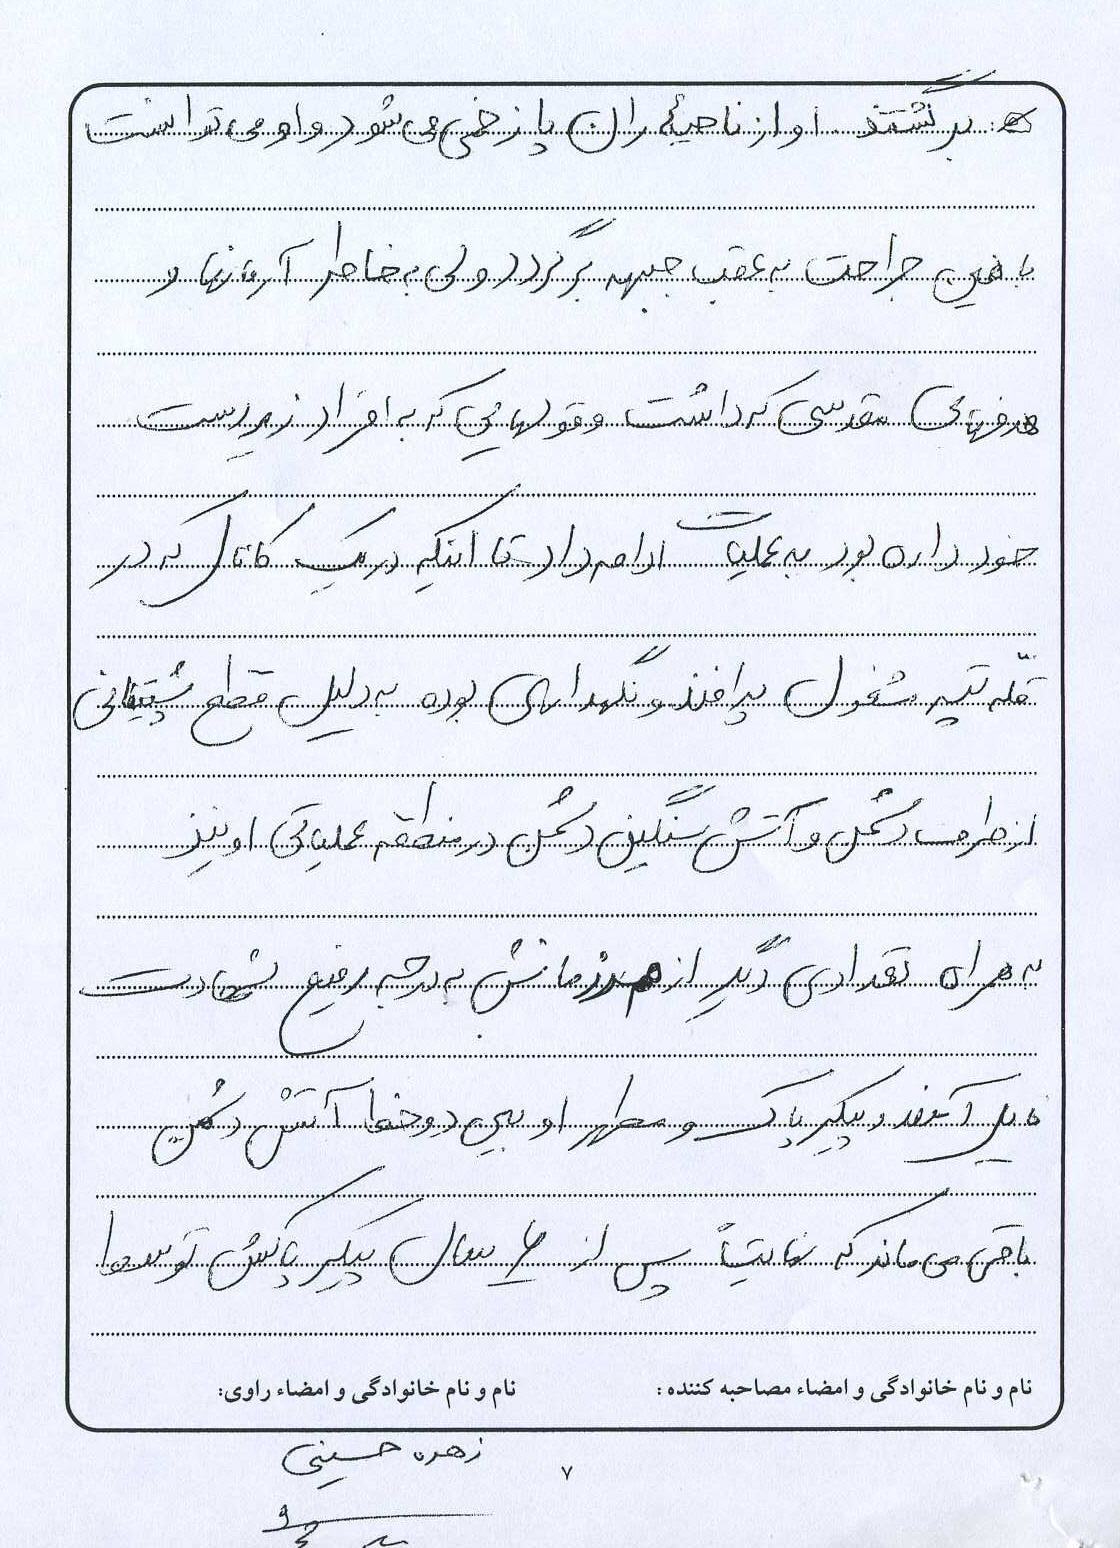 برگشتند. او از ناحیهٔ ران پا زخمی می‌شود و او می‌توانست
با همین جراحت به عقب جبهه برگردد ولی به خاطر آرمانها و
هدفهایی مقدسی که داشت و قولهایی که به افراد زیردست
خود داده بود به عملیات ادامه داد تا اینکه در یک کانال که در
قلّه تپه مشغول پدافند و نگهداری بوده به دلیل قطع پشتیبانی
از طرف دشمن و آتش سنگین دشمن در منطقه عملیاتی او نیز
به همراه تعدادی دیگر از همرزمانش به درجه رفیع شهادت
نایل آمدند و پیکر پاک و مطهر او بین دو خط آتش دشمن
باقی می‌ماند که نهایتاً پس از ۶ سال پیکر پاکش توسط
نام و نام خانوادگی و امضاء مصاحبه کننده : نام و نام خانوادگی و امضاء راوی:
زهره حسینی
۷